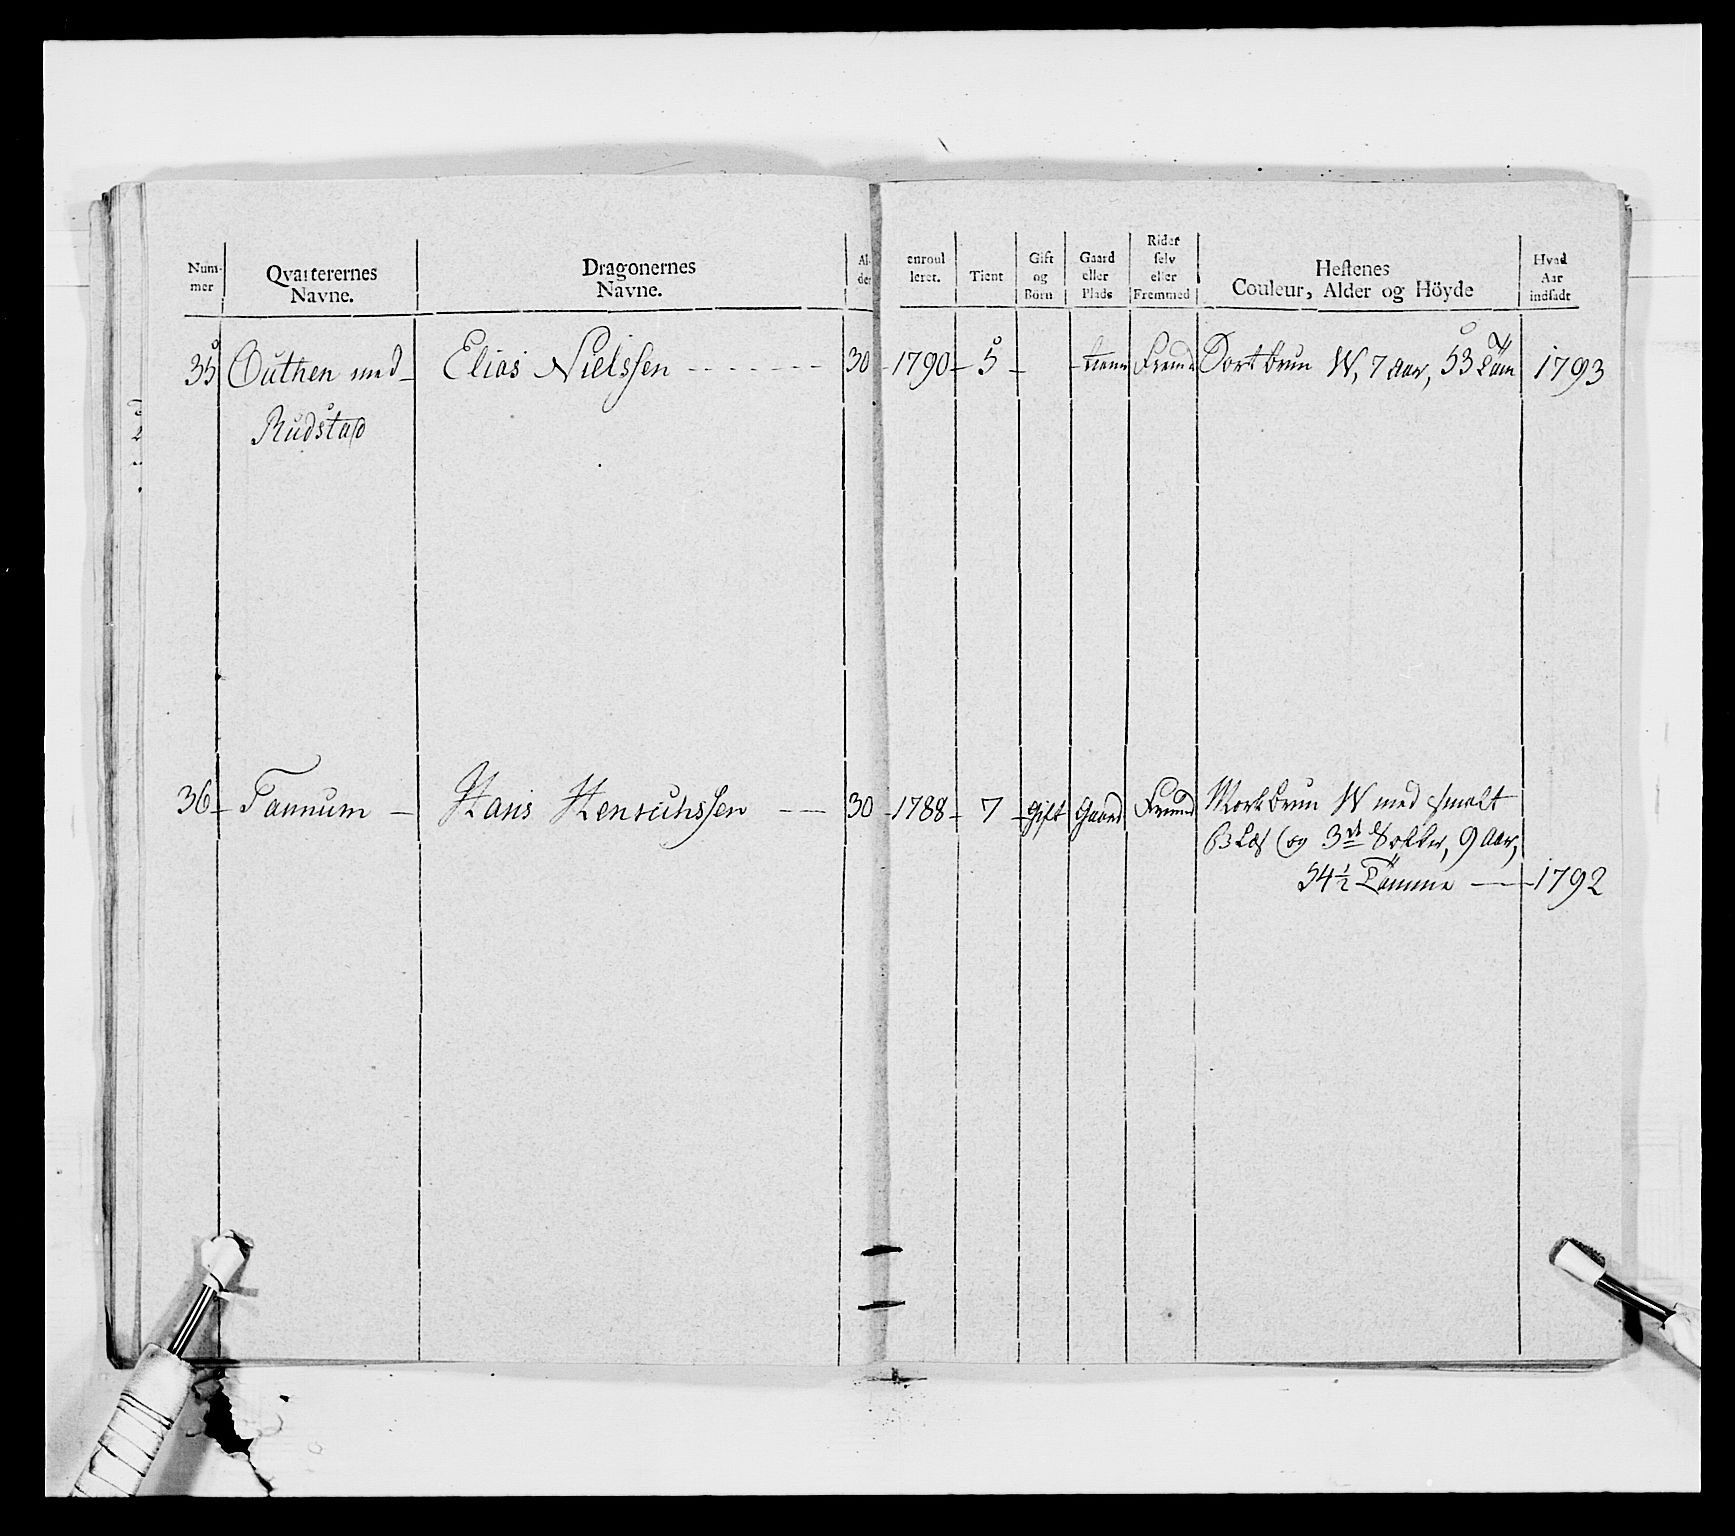 Num-
mer
Qvarterernes
Navne.
Dragonernes
Navne.
Al-
der
enroul
leret.
Tient
Gift
og
Börn
Gaard
eller
Plads
Rider
selv
eller
Fremmed
Hestenes
Couleur, Alder og Höyde
Hvad
Aar
indsadt
35 Outhen med Elias Nielssen - - - - - - - 30 1790 5 tiener Fremd Sort brun W, 7 aar, 53 Töm 1793
Rudstad
36 Tannum Hans Henrichssen 30 1788 7 Gift Gaard Fremd Mörk brun W med smalt
og 3de Sokker, 9 Aar,
54½ Tömme 1792